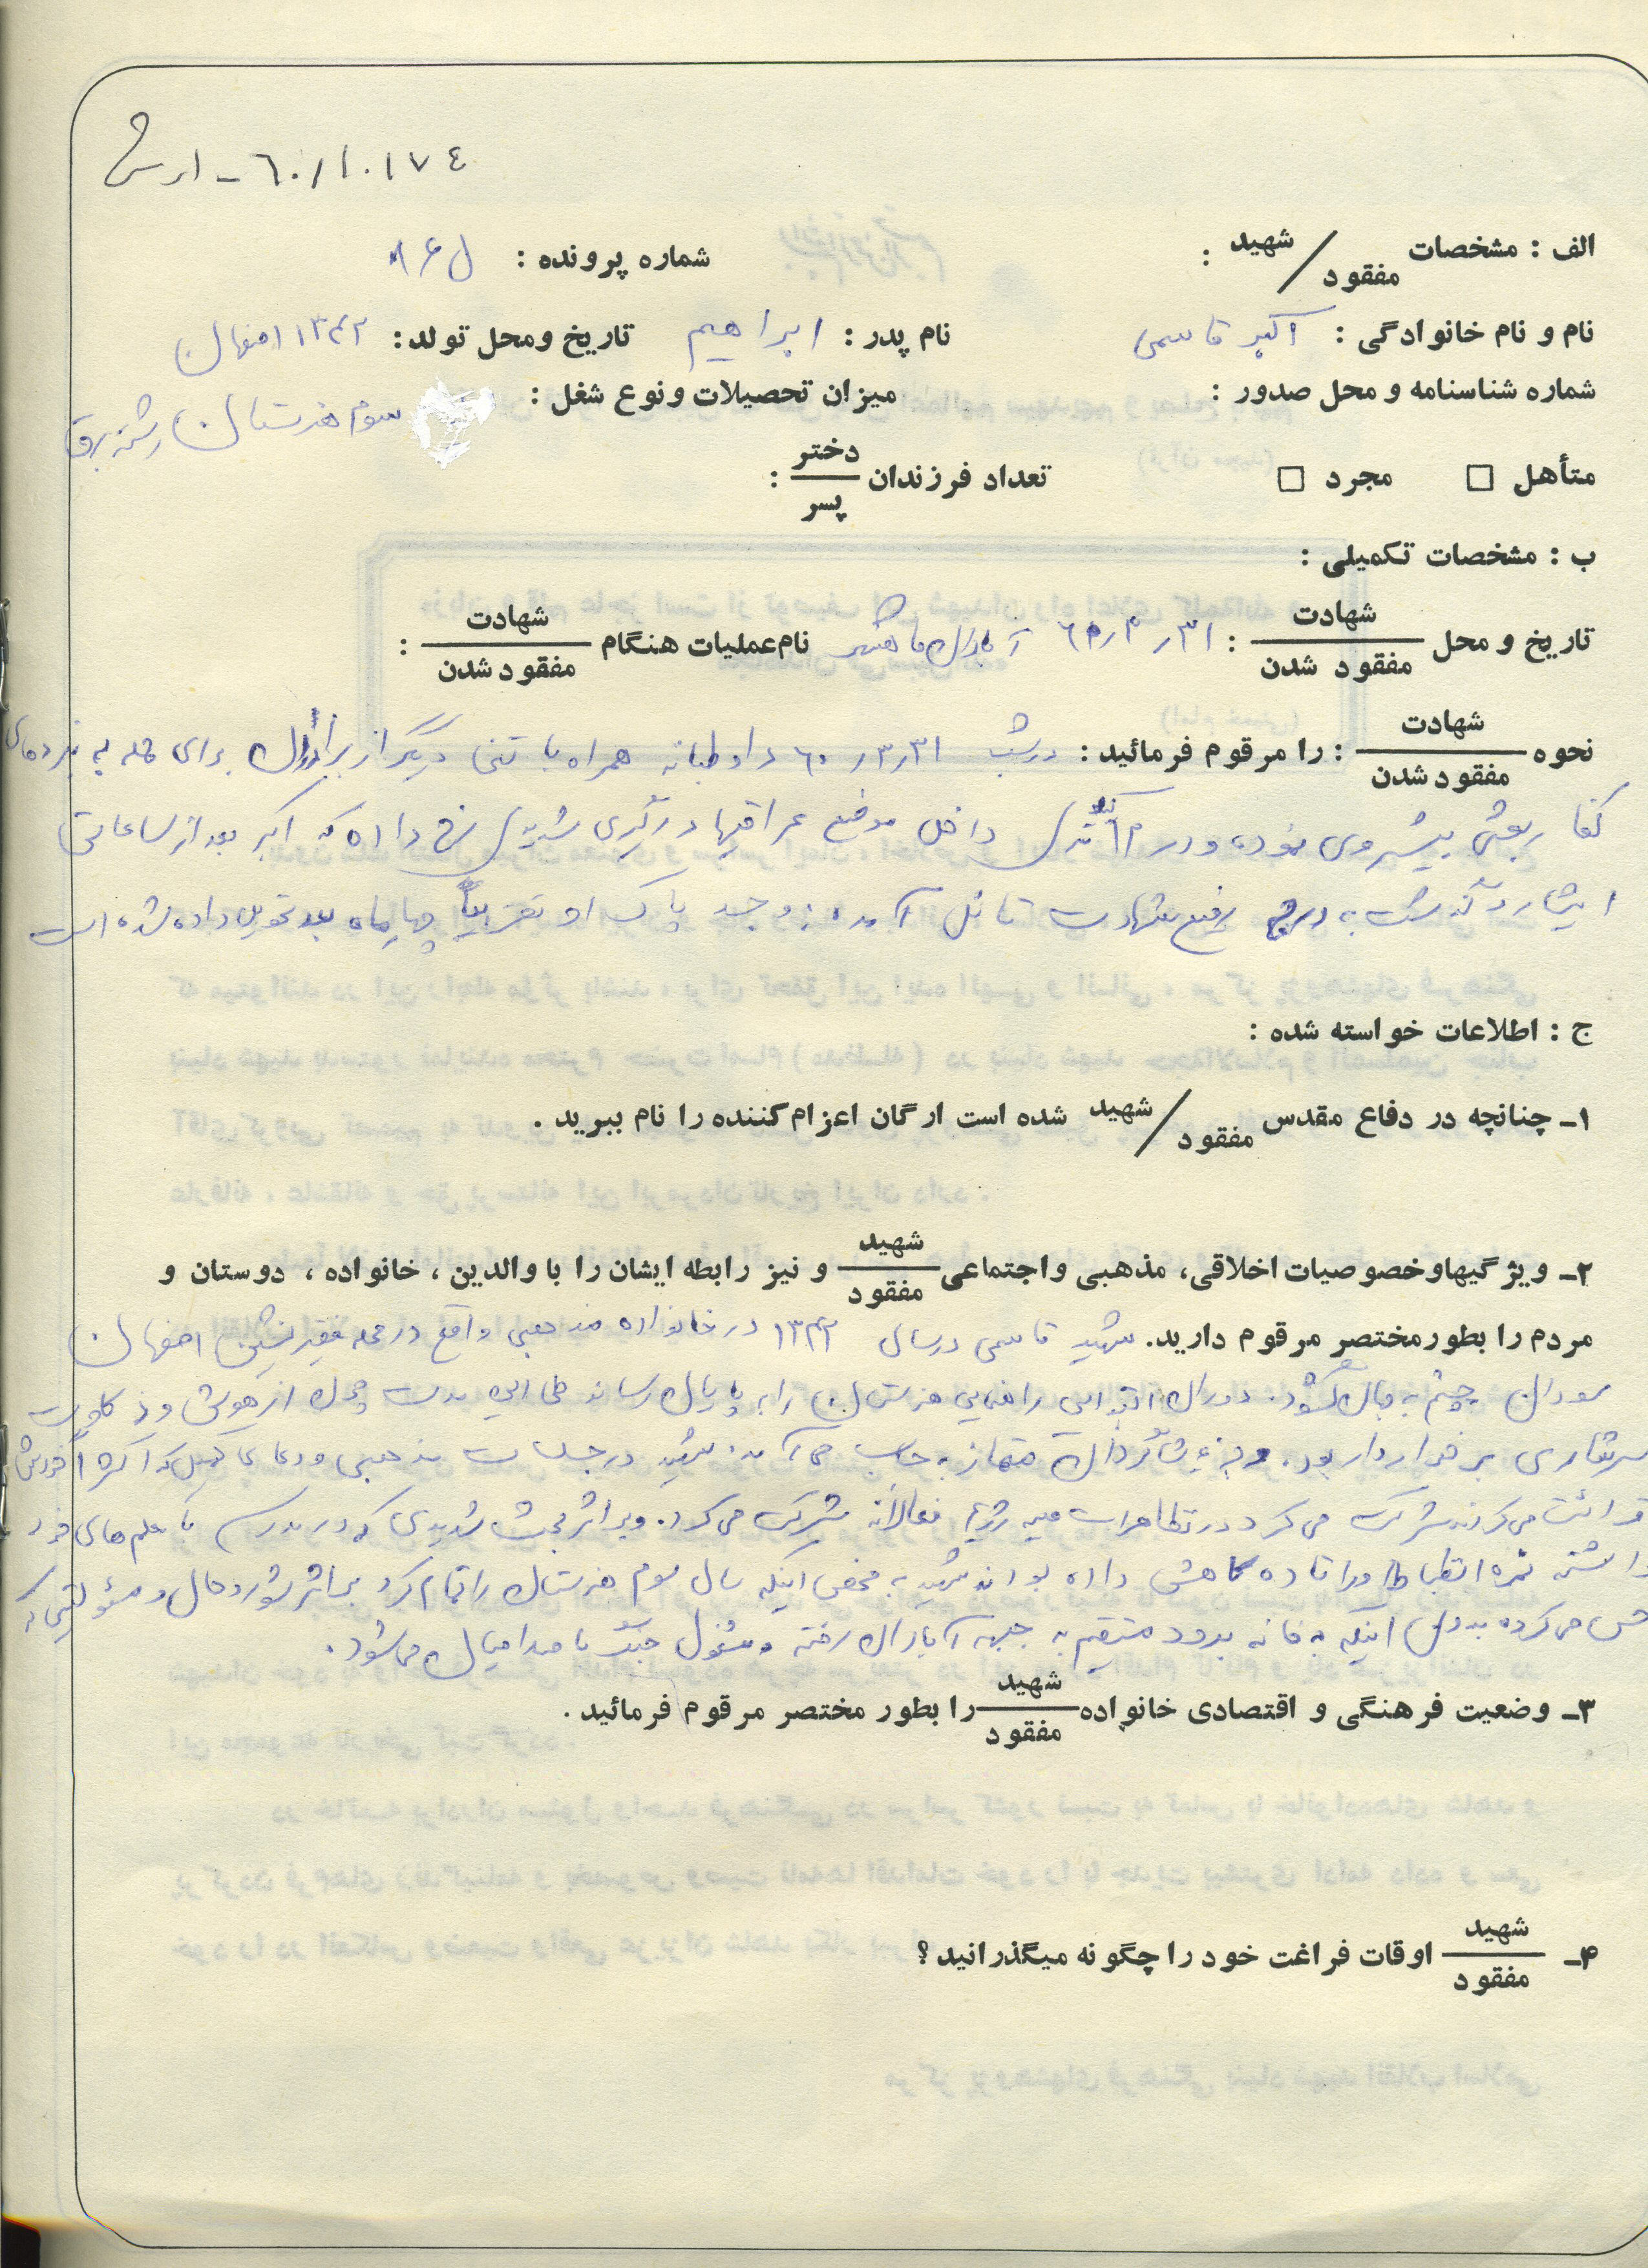 ٦٠/١٠١٧٤ - ارتش
الف : مشخصات شهید / مفقود :
شماره پرونده : ل ۸۶
نام و نام خانوادگی : اکبر قاسمی نام پدر : ابراهیم تاریخ ومحل تولد : ۱۳۴۲ اصفهان
شماره شناسنامه و محل صدور : میزان تحصیلات ونوع شغل : سوم هنرستان رشته برق
متأهل □ مجرد □ تعداد فرزندان دختر / پسر :
ب : مشخصات تکمیلی :
تاریخ و محل شهادت / مفقود شدن : ۳۱ر۳ر۶۰ آبادان نام عملیات هنگام شهادت / مفقود شدن :
نحوه شهادت / مفقود شدن : را مرقوم فرمائید : در شب ۳۱ر۳ر۶۰ داوطلبانه همراه با تنی دیگر از برادران برای حمله به
کفار بعثی پیشروی نموده و در داخل موضع عراقیها درگیری شدیدی رخ داده که اکبر بعد از ساعاتی
ایثار و گذشت به درجه رفیع شهادت نائل آمده و جسد پاک او تقریباً چهارماه بعد تحویل داده شده است
ج : اطلاعات خواسته شده :
۱ـ چنانچه در دفاع مقدس شهید / مفقود شده است ارگان اعزام کننده را نام ببرید .
۲ـ ویژگیها وخصوصیات اخلاقی، مذهبی واجتماعی شهید / مفقود و نیز رابطه ایشان را با والدین ، خانواده ، دوستان و
مردم را بطور مختصر مرقوم دارید. شهید قاسمی در سال ۱۳۴۲ در خانواده مذهبی واقع در محله فقیر نشین اصفهان
سودان چشم به جهان گشود. دوران ابتدایی راهنمایی هنرستان را به پایان رساند طی این مدت چون از هوش و ذکاوت
سرشاری برخوردار بود. جزء شاگردان ممتاز به حساب می آمد. شهید در جلسات مذهبی و دعای کمیل که اکثراً خودش
قرائت می کردند شرکت می کرد در تظاهرات ضد رژیم فعالانه شرکت می کرد. و بر اثر بحث شدیدی که در مدرسه با معلم های خود
داشته نمره انضباط او را تا ده کاهش داده بودند شهید به محض اینکه سال سوم هنرستان را تمام کرد بر اثر شور و حال و مسئولیتی که
حس می کرده بدون اینکه به خانه برود مستقیم به جبهه آبادان رفته و مشغول جنگ با صدامیان می شود.
۳ـ وضعیت فرهنگی و اقتصادی خانواده شهید / مفقود را بطور مختصر مرقوم فرمائید .
۴ـ شهید / مفقود اوقات فراغت خود را چگونه میگذرانید ؟